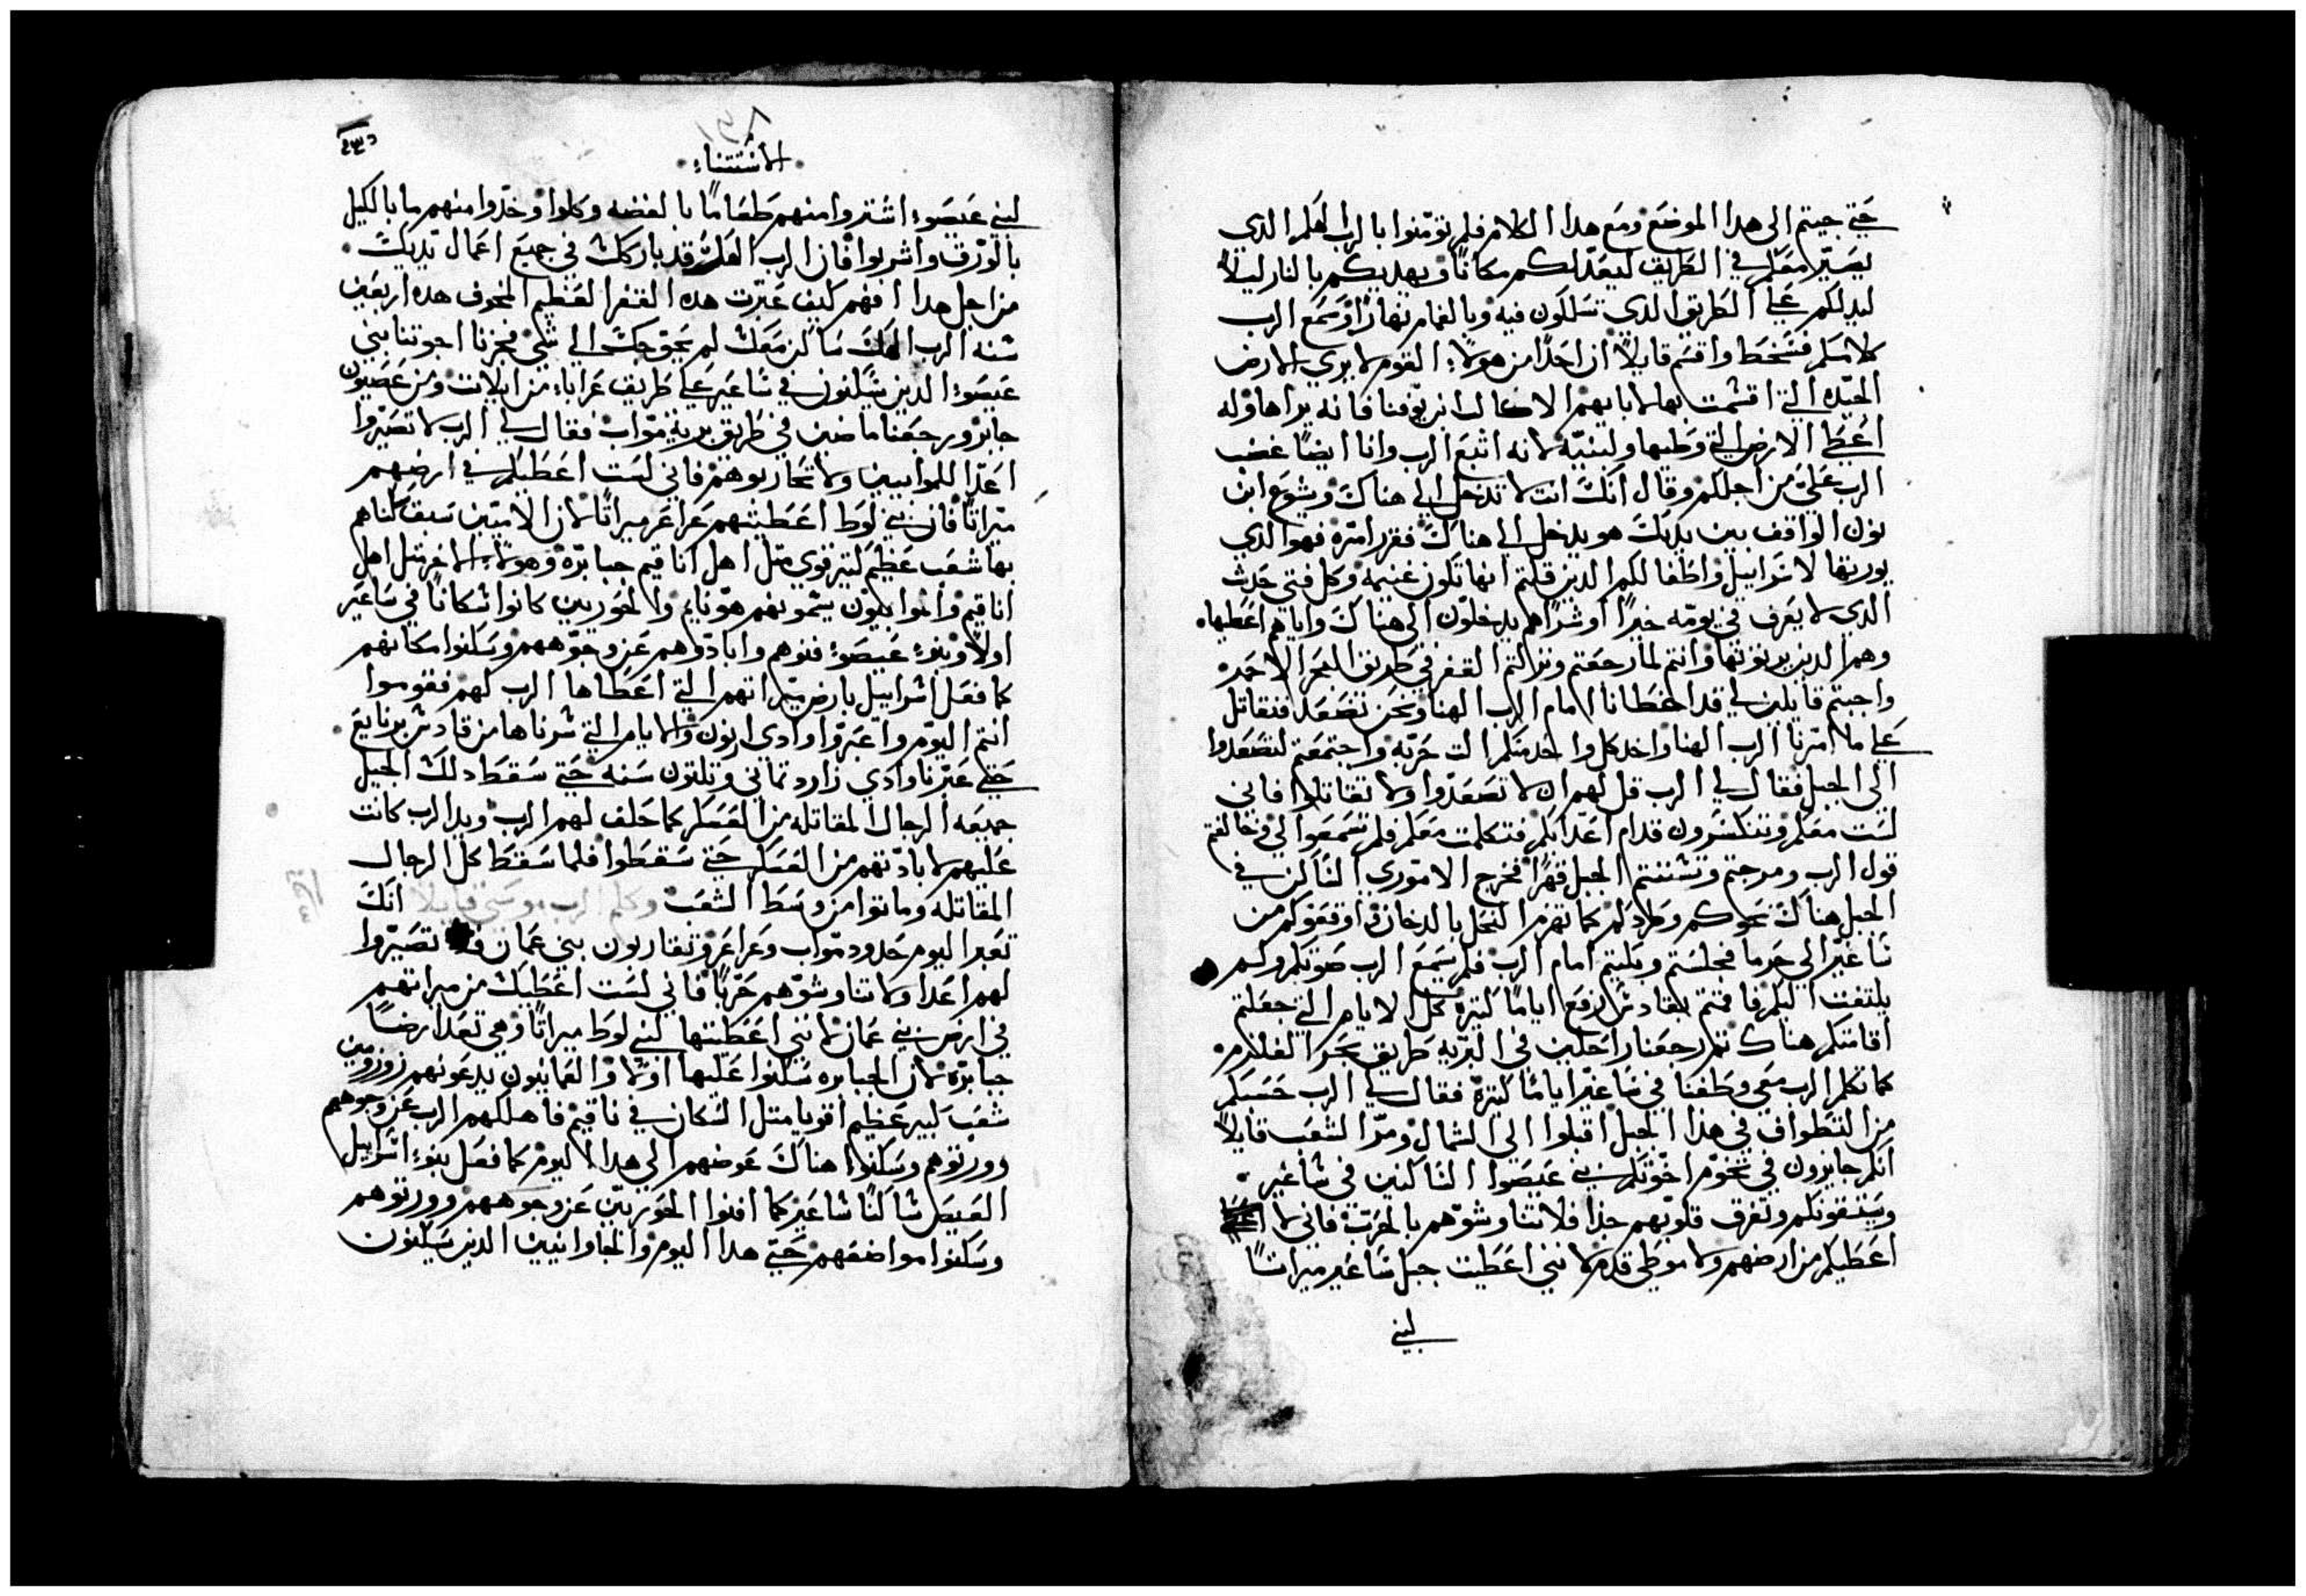 حتي جيتم الى هدا الموضع ومع هدا الكلام فلم تومنوا بالرب الهكم الدي
يصير معكم في الطريق ليعد لكم مكانًا ويهديكم بالنار ليلًا
ليدلكم علي الطريق الدي تسلكون فيه وبالغمام نهارًا وسمع الرب
كلامكم فسخط واقسم قايلًا ان احدًا من هولاء القوم لا يري الارض
الجيده التي اقسمت بها لابايهم الا كالب ابن يوفنا فانه يراها وله
اعطي الارض التي وطيها ولبنيه لانه اتبع الرب وانا ايضًا غضب
الرب علي من اجلكم وقال انك انت لا تدخل الي هناك ويشوع ابن
نون الواقف بين يديك هو يدخل الي هناك فقرر امره فهو الدي
يورثها لاسراييل واطفالكم الدين قلتم انها تكون غنيمه وكل فتي حدث
الدي لا يعرف في يومه خيرًا او شرًا هم يدخلون الى هناك واياهم اعطيها
وهم الدين يرثونها وانتم لما رجعتم ونزلتم القفر في طريق البحر الاحمر
واجبتم قايلين لي قد اخطانا امام الرب الهنا ونحن نصعد فنقاتل
علي ما امرنا الرب الهنا واخد كل واحد منكم الت حربه واجتمعتم لتصعدوا
الى الجبل فقال لي الرب قل لهم ان لا تصعدوا ولا تقاتلوا فاني
لست معكم وتنكسرون قدام اعدايكم فتكلمت معكم فلم تسمعوا لي وخالفتم
قول الرب ومرجتم وتشتتم الجبل قهرًا فخرج الاموري الساكن في
الجبل هناك نحوكم وطردكم كما تهزم النحل بالدخان واوقعوكم من
ساعير الي حرما فجلستم وبكيتم امام الرب فلم يسمع الرب صوتكم ولم
يلتفت اليكم فاقمتم بقادش برنع ايامًا كتيره كل الايام التي جعلتم
اقامتكم هناك تم رجعنا راحلين في البريه طريق بحر القلزم
كما تكلم الرب معي وطفنا في ساعير ايامًا كتيرة فقال لي الرب حسبكم
من التطواف في هذا الجبل اقبلوا الى الشمال ومر الشعب قايلًا
انكم جايزون في تخوم اخوتكم بني عيصوا الساكنين في ساعير
وسيتقونكم وتفرق قلوبهم جدا فلا تناوشوهم بالحرب فاني لا
اعطيكم من ارضهم ولا موطي قدم لانني اعطيت جبل ساعير ميراثًا
لبني
الاستتناء
لبني عيصوء اشتروا منهم طعامًا بالفضه وكلوا وخدوا منهم ما بالكيل
بالورق واشربوا فان الرب الهك قد باركك في جميع اعمال يديك
من اجل هدا افهم كيف عبرت هده القفر العظيم المخوف هده اربعين
سنه الرب الهك ساكن معك لم يحوجك الي شي فجزنا اخوتنا بني
عيصوء الدين يسكنون في ساعير علي طريق عراباء من ايلات ومن عصيون
جابر ورجعنا ماضين في طريق برية مواب فقال لي الرب لا تصيروا
اعدا للموابيين ولا تحاربوهم فاني لست اعطيكم في ارضهم
ميراتًا فان بني لوط اعطيتهم عراعر ميراتًا لان الاميين سبق سكناهم
بها شعب عظيم كتير قوي متل اهل اناقيم جبابره وهولاء الاخر متل اهل
اناقيم والموابيون يسمونهم هوناء والحوريين كانوا سكانًا في ساعير
اولًا وبنوء عيصوء فنوهم وابادوهم عن وجوههم وسكنوا مكانهم
كما فعل اسراييل بارض ميراتهم التي اعطاها الرب لهم فقوموا
انتم اليوم واعبروا وادى ارنون والايام التي سرناها من قادش برنايع
حتي عبرنا وادي زارد تماني وتلتون سنه حتي سقط دلك الجيل
جميعه الرجال المقاتله من العسكر كما حلف لهم الرب ويد الرب كانت
عليهم لابادتهم من العسكر حتي سقطوا فلما سقط كل الرجال
المقاتله وماتوا من وسط الشعب وكلم الرب موسى قايلا انك
تعبر اليوم حدود مواب وعراعر وتقاربون بني عمان تصيروا
لهم اعدا ولا تناوشوهم حربًا فاني لست اعطيك من ميراتهم
في ارض بني عمان لانني اعطيتها لبني لوط ميراتًا وهي تعد ارضًا
جبابرة لان الجبابره سكنوا عليها اولًا والعمانيون يدعونهم زوزومين
شعب كبير عظيم اقويا متل السكان في ناقيم فاهلكهم الرب عن وجوههم
وورتوهم وسكنوا هناك عوضهم الى هدا اليوم كما فعل بنوء اسراييل
العيص ساكنًا ساعير كما افنوا الحوريين عن وجوههم وورتوهم
وسكنوا مواضعهم حتي هدا اليوم والحاوانيين الدين يسكنون